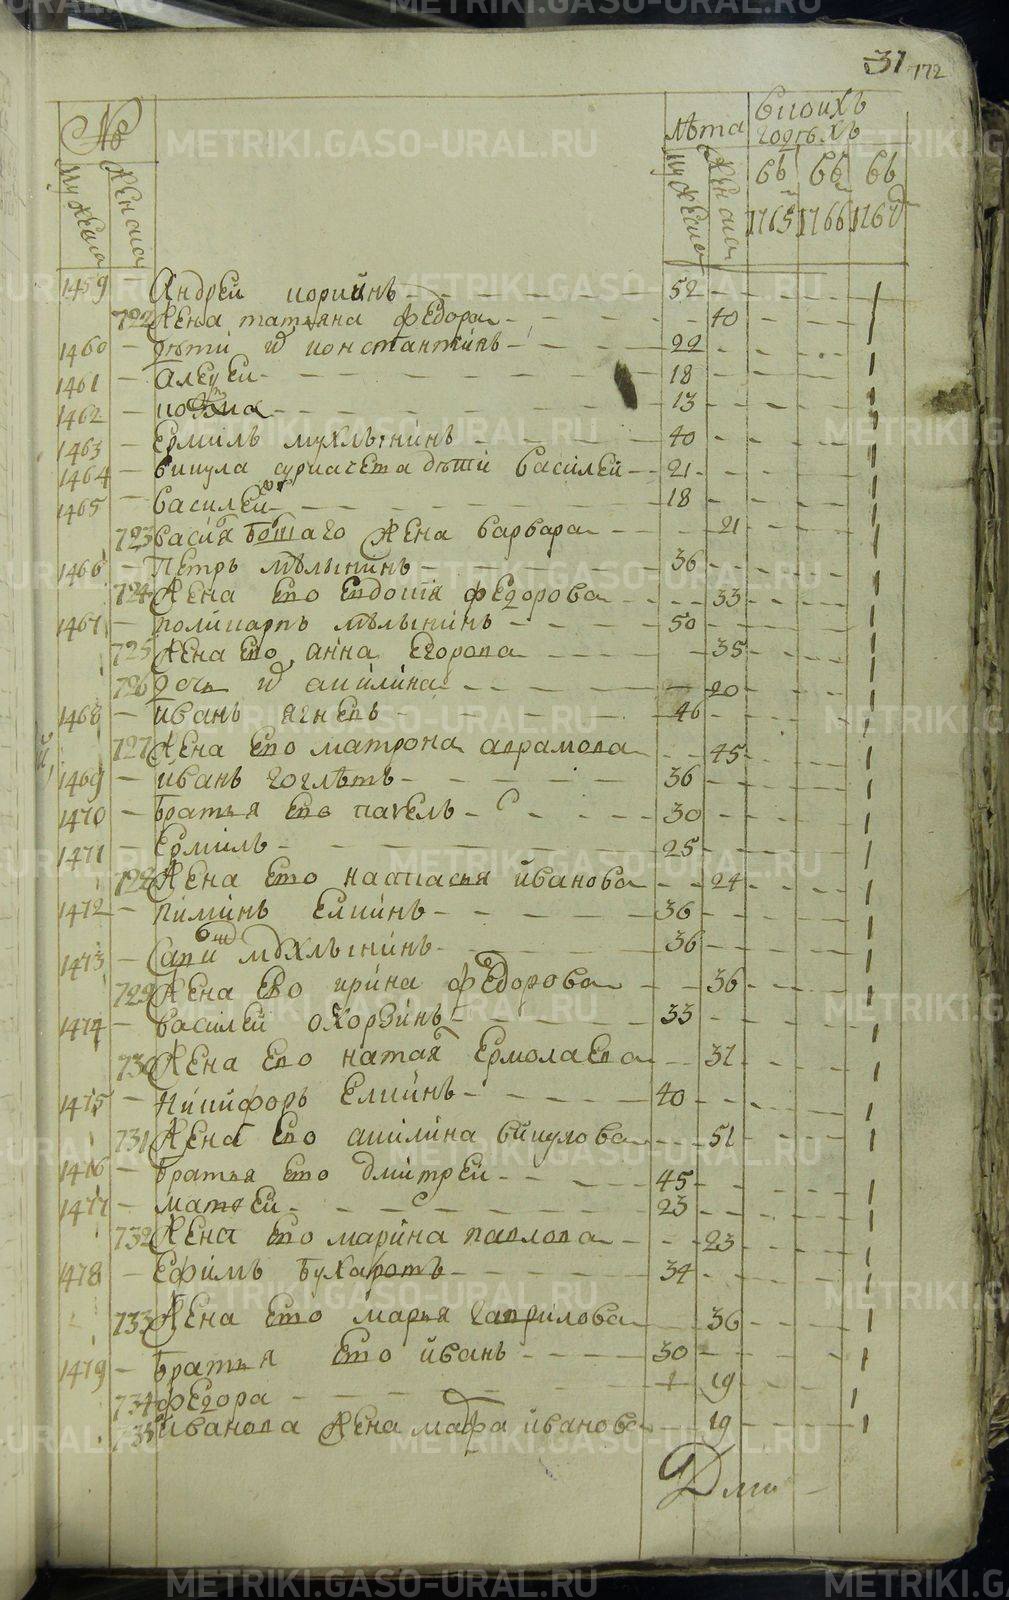 METRIKI.GASO-URAL.RU
37 172
№
лѣта
в коихъ
годѣхъ
мужеска
женска
мужеска
женска
въ 1765
въ 1766
въ 1767
1459 — Андрей коркинъ 52
722 Жена татьяна федора 40
1460 — дѣти ихъ константинъ 22
1461 — алексей 18
1462 — козма 13
1463 — Ермилъ мухлынинъ 40
1464 — викула дети василей 21
1465 — василей 18
723 жена варвара 21
1466 — петръ мѣлкинъ 36
724 Жена ево евдокия федорова 33
1467 — поликарпъ мѣлкинъ 50
725 Жена ево анна егорова 35
726 дочь их акилина 20
1468 — иванъ ягневъ 46
727 Жена ево матрона аврамова 45
1469 — иванъ гоглѣтъ 36
1470 — братья ево павелъ 30
1471 — Ермилъ 25
728 Жена ево настасья иванова 24
1472 — пиминъ елкинъ 36
1473 — мухлынинъ 36
729 Жена ево ирина федорова 36
1474 — василей охорзинъ 33
730 Жена ево натал Ермолаева 37
1475 — никифоръ Елкинъ 40
731 Жена ево акилина викулова 51
1476 — братья ево дмитрей 45
1477 — матвей 23
732 Жена ево марина павлова 23
1478 — Ефимъ бухаровъ 34
733 Жена ево марья гаврилова 36
1479 — братья ево иванъ 30
734 федора 19
735 иванова жена мафа иванова 19
Дми